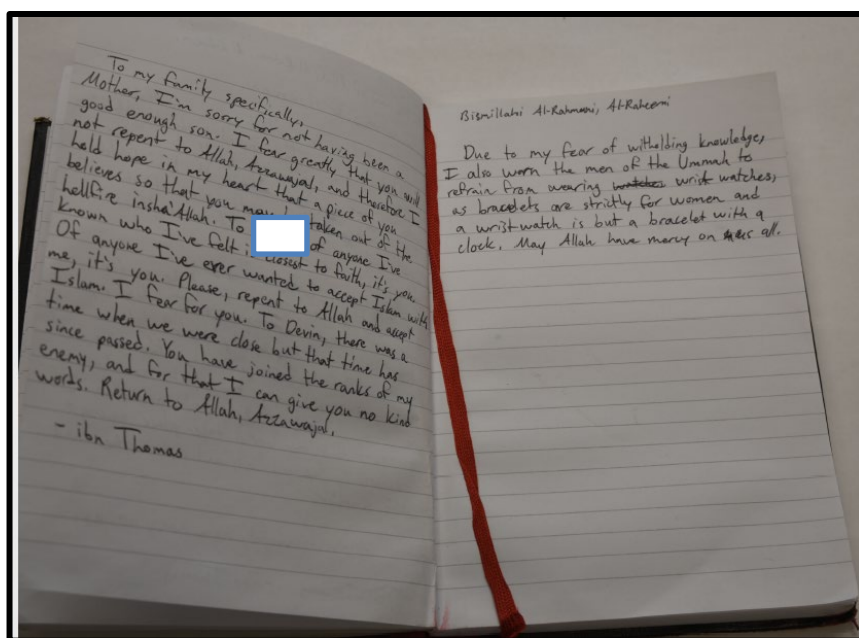 To my family specifically,
Mother, I'm sorry for not having been a
good enough son. I fear greatly that you will
not repent to Allah, Azzawajal, and therefore I
held hope in my heart that a piece of you
believes so that you may be taken out of the
hellfire insha'Allah. To of anyone I've
known who I've felt is closest to faith, it's you.
Of anyone I've ever wanted to accept Islam with
me, it's you. Please, repent to Allah and accept
Islam. I fear for you. To Devin, there was a
time when we were close but that time has
since passed. You have joined the ranks of my
enemy, and for that I can give you no kind
words. Return to Allah, Azzawajal.
- ibn Thomas
Bismillahi Al-Rahmani, Al-Raheemi
Due to my fear of witholding knowledge,
I also warn the men of the Ummah to
refrain from wearing watches wrist watches,
as bracelets are strictly for women and
a wrist watch is but a bracelet with a
clock. May Allah have mercy on us all.